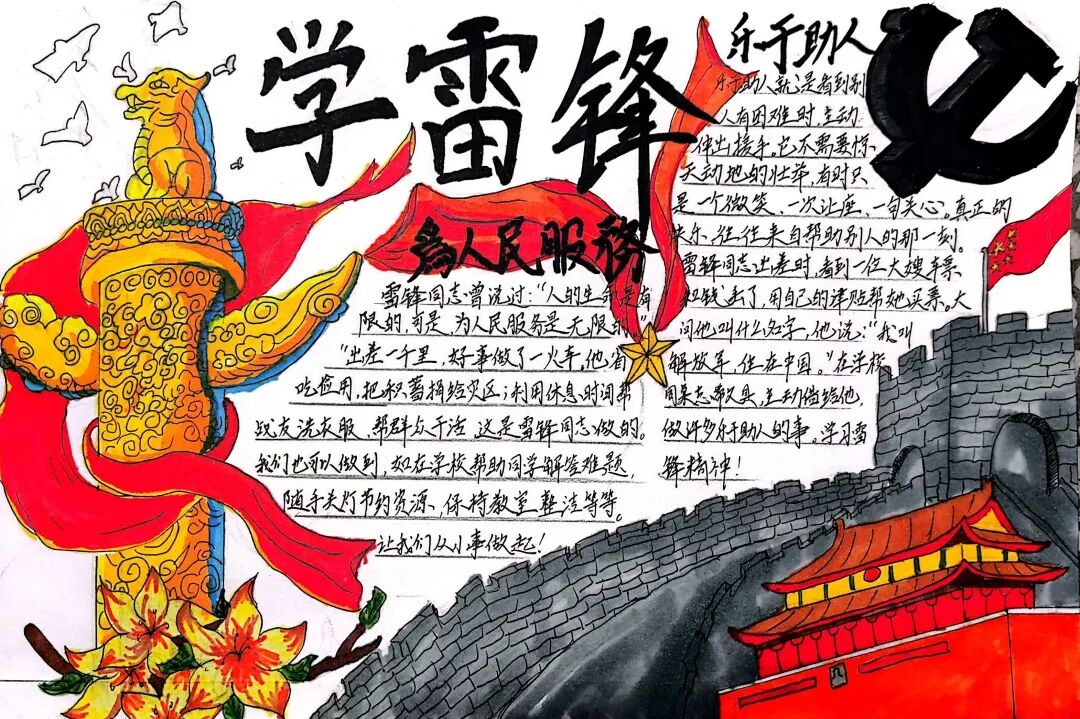 学雷锋
为人民服務
雷锋同志曾说过：“人的生命是有
限的，可是，为人民服务是无限的。”
“出差一千里，好事做了一火车。他，省
吃俭用，把积蓄捐给灾区；利用休息时间帮
战友洗衣服、帮群众干活 这是雷锋同志做的。
我们也可以做到，如在学校帮助同学解答难题，
随手关灯节约资源、保持教室整洁等等。
让我们从小事做起！
乐于助人
乐于助人就是看到别
人有困难时，主动
伸出援手。它不需要惊
天动地的壮举，有时只
是一个微笑、一次让座、一句关心。真正的
快乐，往往来自帮助别人的那一刻。
雷锋同志出差时，看到一位大嫂车票
和钱丢了，用自己的津贴帮她买票。大
问他叫什么名字，他说：“我叫
解放军，住在中国。”在学校
同桌忘带文具，主动借给他，
做许多乐于助人的事。学习雷
锋精神！